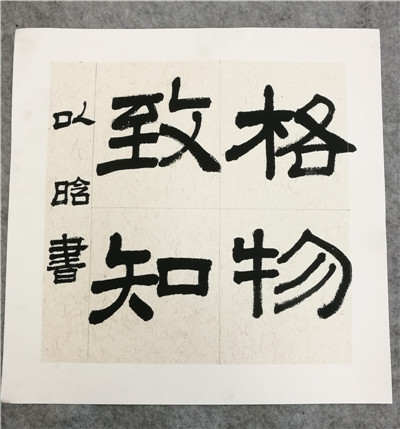 格物
致知
以晗書